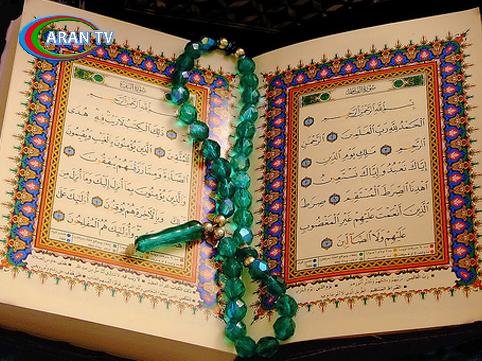 ARAN TV
سُورَةُ الْفَاتِحَةِ
بِسْمِ اللَّهِ الرَّحْمَٰنِ الرَّحِيمِ
الْحَمْدُ لِلَّهِ رَبِّ الْعَالَمِينَ الرَّحْمَٰنِ
الرَّحِيمِ مَالِكِ يَوْمِ الدِّينِ
إِيَّاكَ نَعْبُدُ وَإِيَّاكَ نَسْتَعِينُ
اهْدِنَا الصِّرَاطَ الْمُسْتَقِيمَ صِرَاطَ
الَّذِينَ أَنْعَمْتَ عَلَيْهِمْ غَيْرِ الْمَغْضُوبِ
عَلَيْهِمْ وَلَا الضَّالِّينَ
سُورَةُ الْبَقَرَةِ
بِسْمِ اللَّهِ الرَّحْمَٰنِ الرَّحِيمِ
ذَٰلِكَ الْكِتَابُ لَا رَيْبَ فِيهِ هُدًى
الَّذِينَ يُؤْمِنُونَ بِالْغَيْبِ وَيُقِيمُونَ
الصَّلَاةَ وَمِمَّا رَزَقْنَاهُمْ يُنْفِقُونَ
وَالَّذِينَ يُؤْمِنُونَ بِمَا أُنْزِلَ إِلَيْكَ وَمَا أُنْزِلَ مِنْ
وَبِالْآخِرَةِ هُمْ يُوقِنُونَ أُولَٰئِكَ عَلَىٰ
وَأُولَٰئِكَ هُمُ الْمُفْلِحُونَ